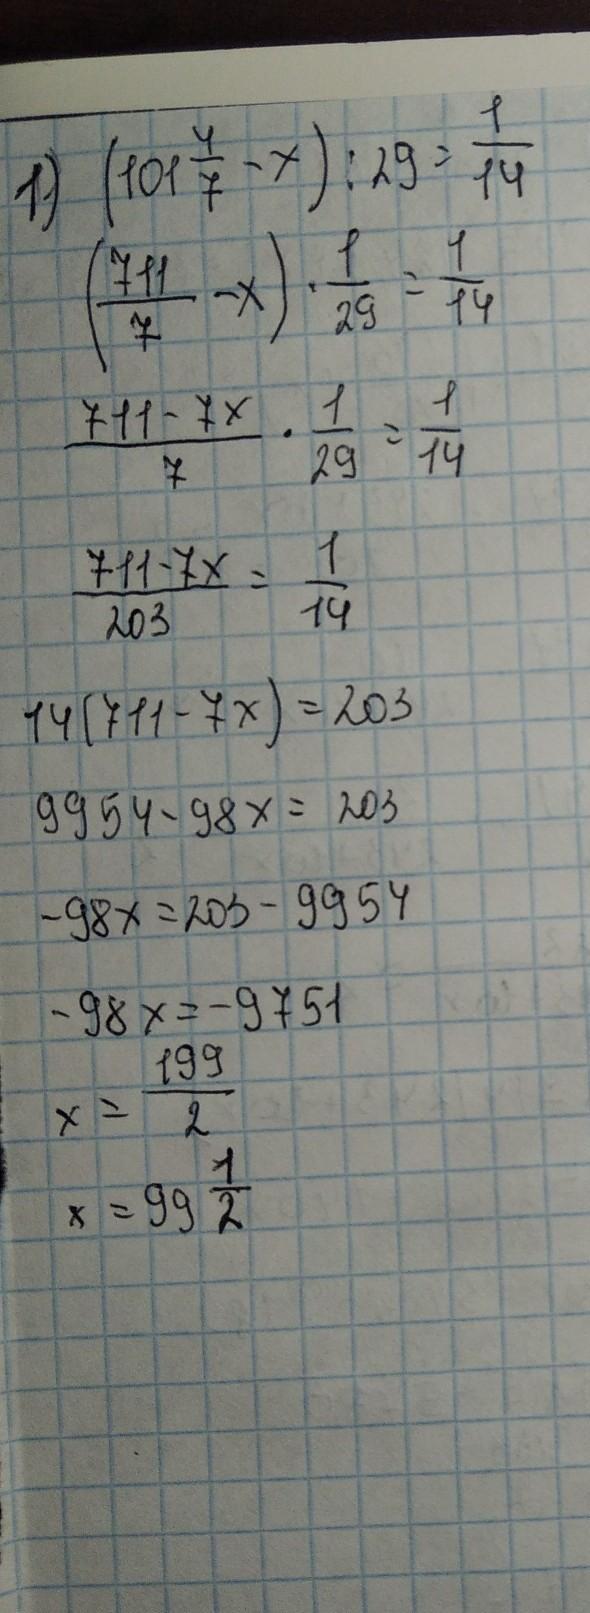 1) (101 4/7 - x) : 29 = 1/14
(711/7 - x) · 1/29 = 1/14
711 - 7x/7 · 1/29 = 1/14
711 - 7x/203 = 1/14
14(711 - 7x) = 203
9954 - 98x = 203
-98x = 203 - 9954
-98x = -9751
x = 199/2
x = 99 1/2